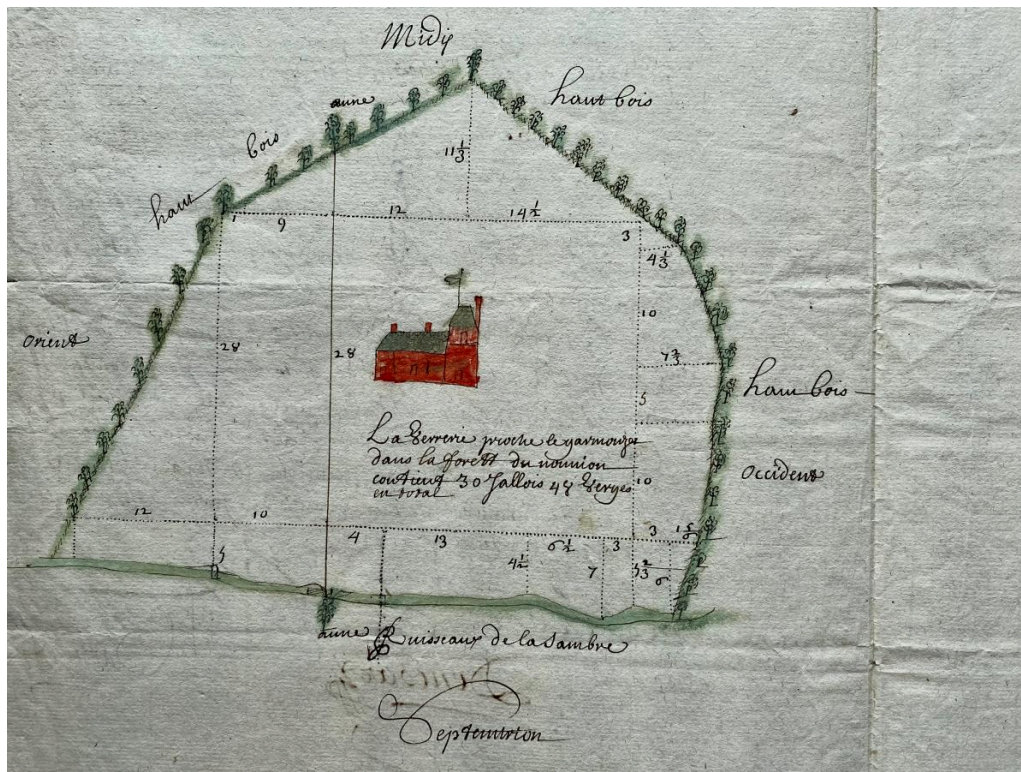 Midy
haut bois
aune
haut bois
11 1/3
9
12
14 1/2
3
4 1/3
10
orient
28
28
7 2/3
haut bois
5
La Verrerie proche le garmouzet
dans la forest du nouuion
contient 30 Jallois 48 Verges
en total
10
occident
12
10
4
13
6 1/2
3
3
1 5/6
5
4 1/2
7
5 2/3
6
aune
Ruisseaux de la Sambre
Septemtrion